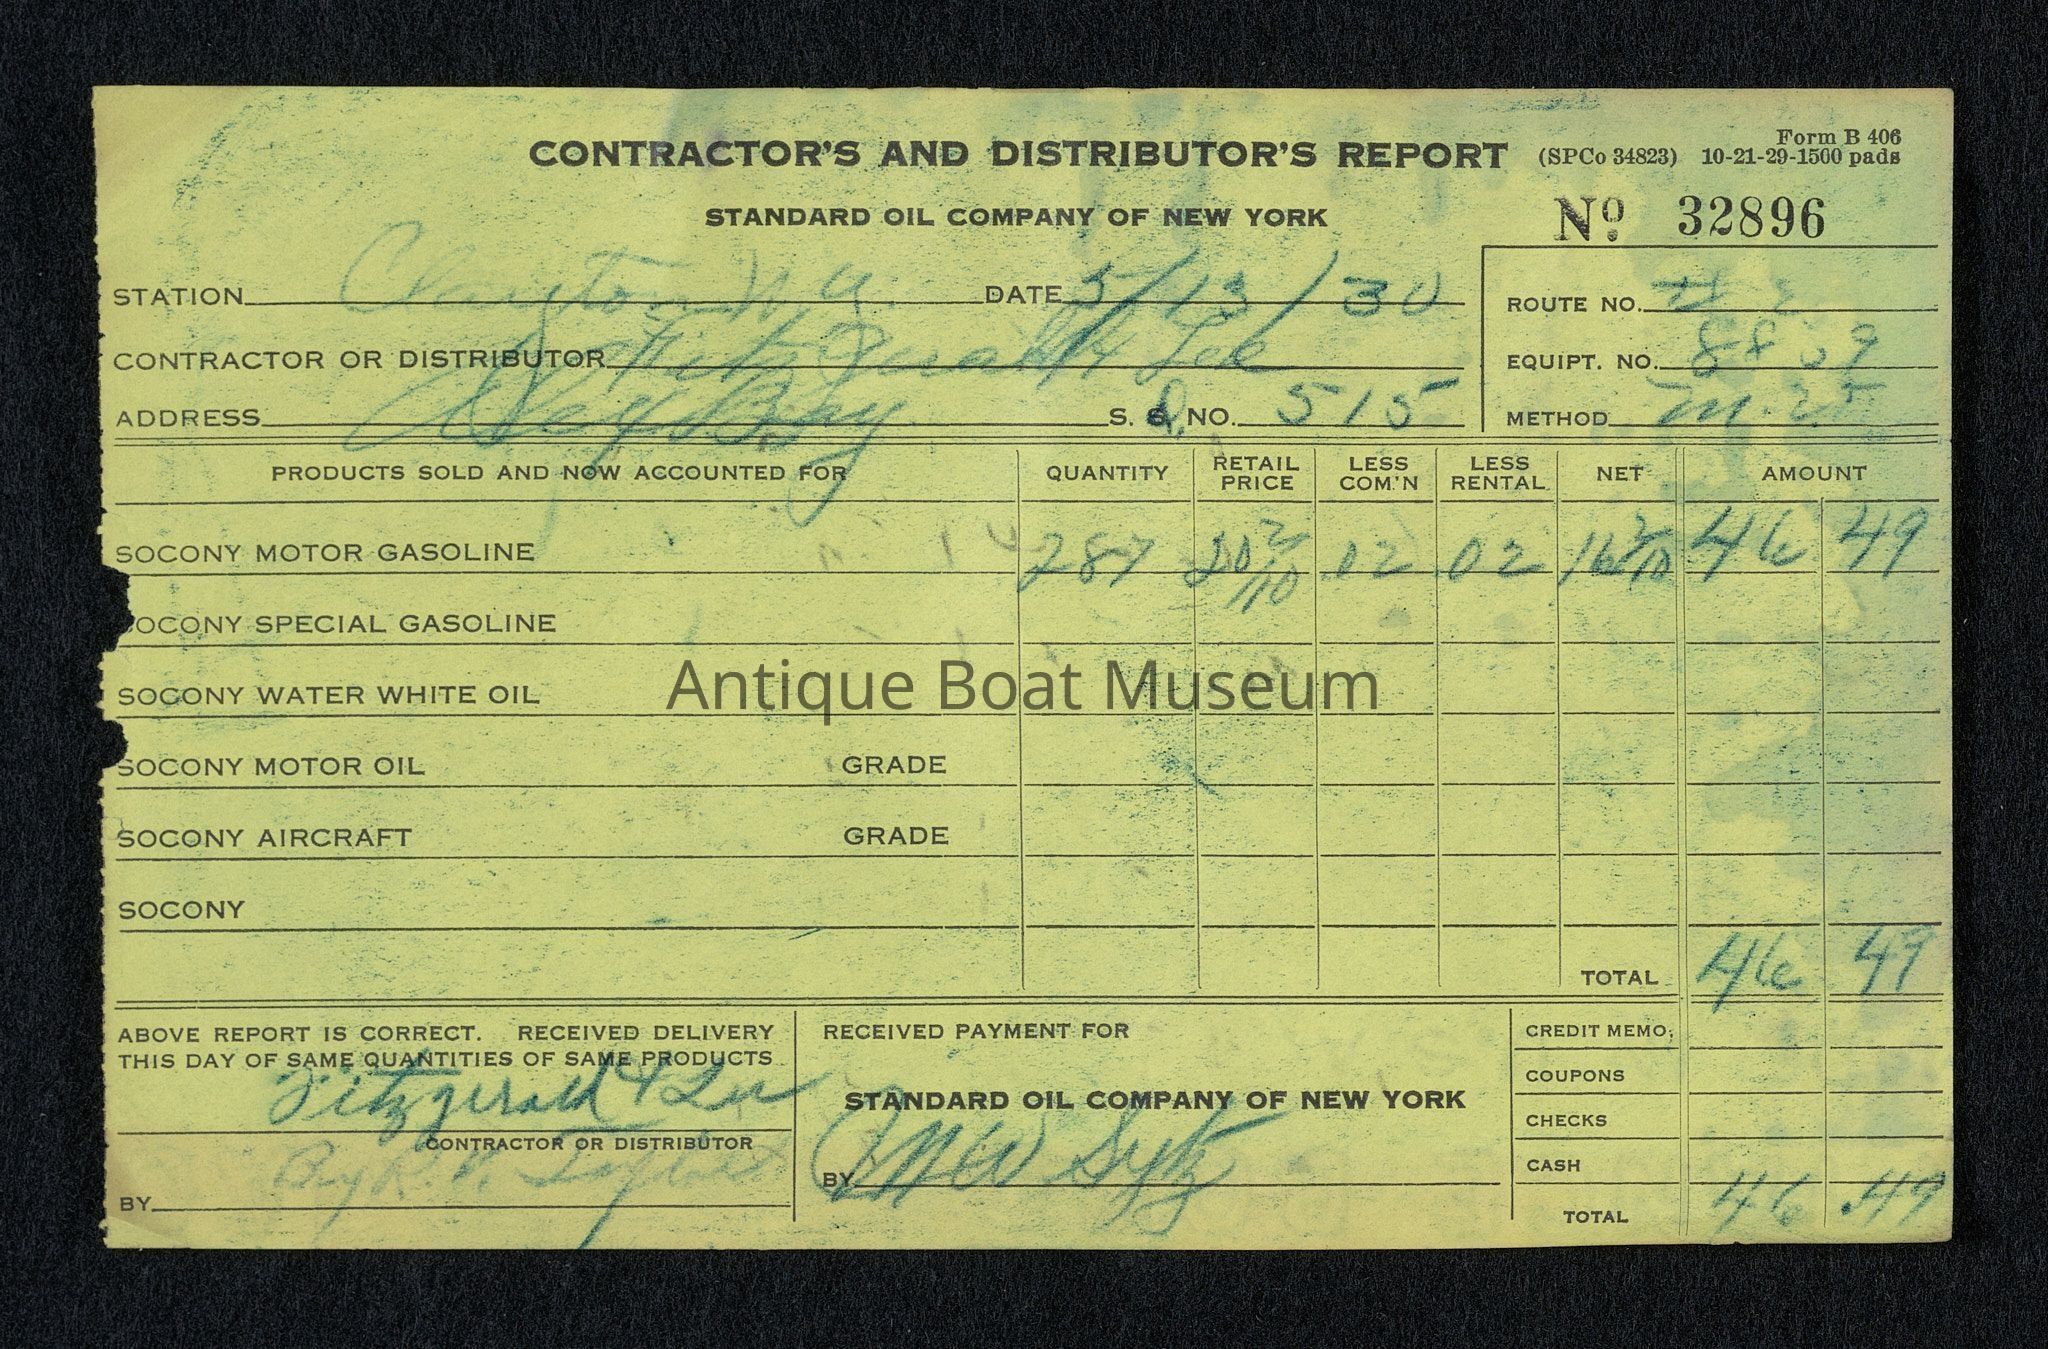 Form B 406
CONTRACTOR'S AND DISTRIBUTOR'S REPORT (SPCo 34823) 10-21-29-1500 pads
STANDARD OIL COMPANY OF NEW YORK
No. 32896
STATION Clayton N.Y. DATE 5/13/30
ROUTE NO.
CONTRACTOR OR DISTRIBUTOR Fitzgerald & Lee
EQUIPT. NO. 8809
ADDRESS Alex Bay S. S. NO. 515
METHOD M. 25
PRODUCTS SOLD AND NOW ACCOUNTED FOR QUANTITY RETAIL PRICE LESS COM.'N LESS RENTAL NET AMOUNT
SOCONY MOTOR GASOLINE 287 20 2/10 .02 .02 16 2/10 46 49
SOCONY SPECIAL GASOLINE
SOCONY WATER WHITE OIL
Antique Boat Museum
SOCONY MOTOR OIL GRADE
SOCONY AIRCRAFT GRADE
SOCONY
TOTAL 46 49
ABOVE REPORT IS CORRECT. RECEIVED DELIVERY
THIS DAY OF SAME QUANTITIES OF SAME PRODUCTS
Fitzgerald & Lee
CONTRACTOR OR DISTRIBUTOR
BY By R. 
RECEIVED PAYMENT FOR
STANDARD OIL COMPANY OF NEW YORK
BY
CREDIT MEMO.
COUPONS
CHECKS
CASH
TOTAL 46.49